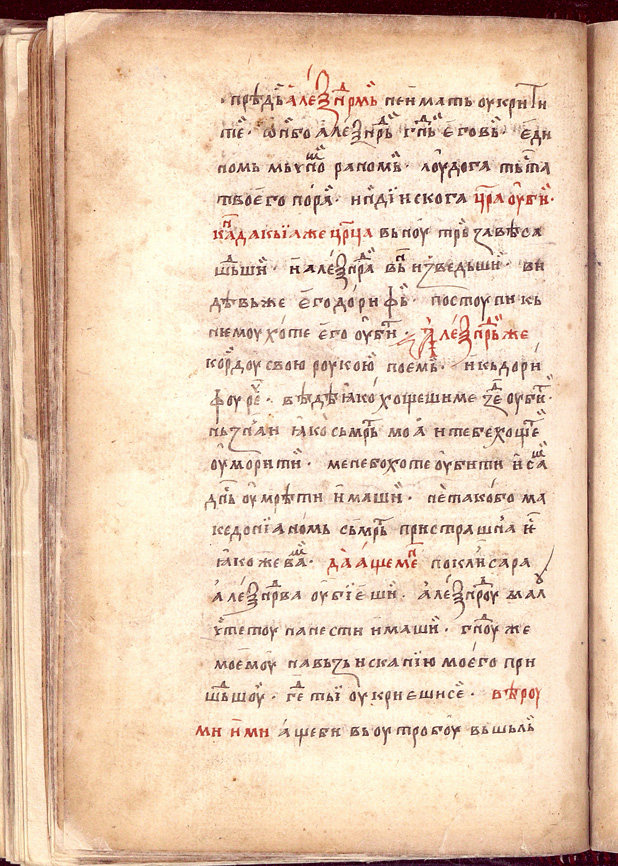 · прѣдь алеѯндрмь не имать оукрити
те · ѡнбо алеѯндрь гнь еговь · еди
номь мьчно раномь · лоудога тьста
твоего пора · ндїнскога цра оуби ·
кандакьїа же црца вьноу трь завѣса
шьши · и алеѯндра вьн изведьши · ви
дѣвьже его дорифь · постоупи кь
нѥмоу хоте его оубит · Алеѯндрьже
кордоу свою роукою поемь · и кьдори
фоу ре · вѣдѣ ꙗко хощешиме зде оубит ·
нь знаи ꙗко сьмрть моа и тебе хоще
оуморити · мене бо хоте оубити и са
днь оумрѣти имаши · не тако бо ма
кедонїаномь сьмрть пристрашна и
ꙗкоже ва · да аще мене поклисара
алеѯндрва оубїеши · алеѯндроу мал
ꙋ тетоу нанести имаши · гноу же
моемоу навьзисканїю моего при
шьшоу · где тьї оукриешисе · вѣроу
ми ими аще би вьоутробоу вьшьль